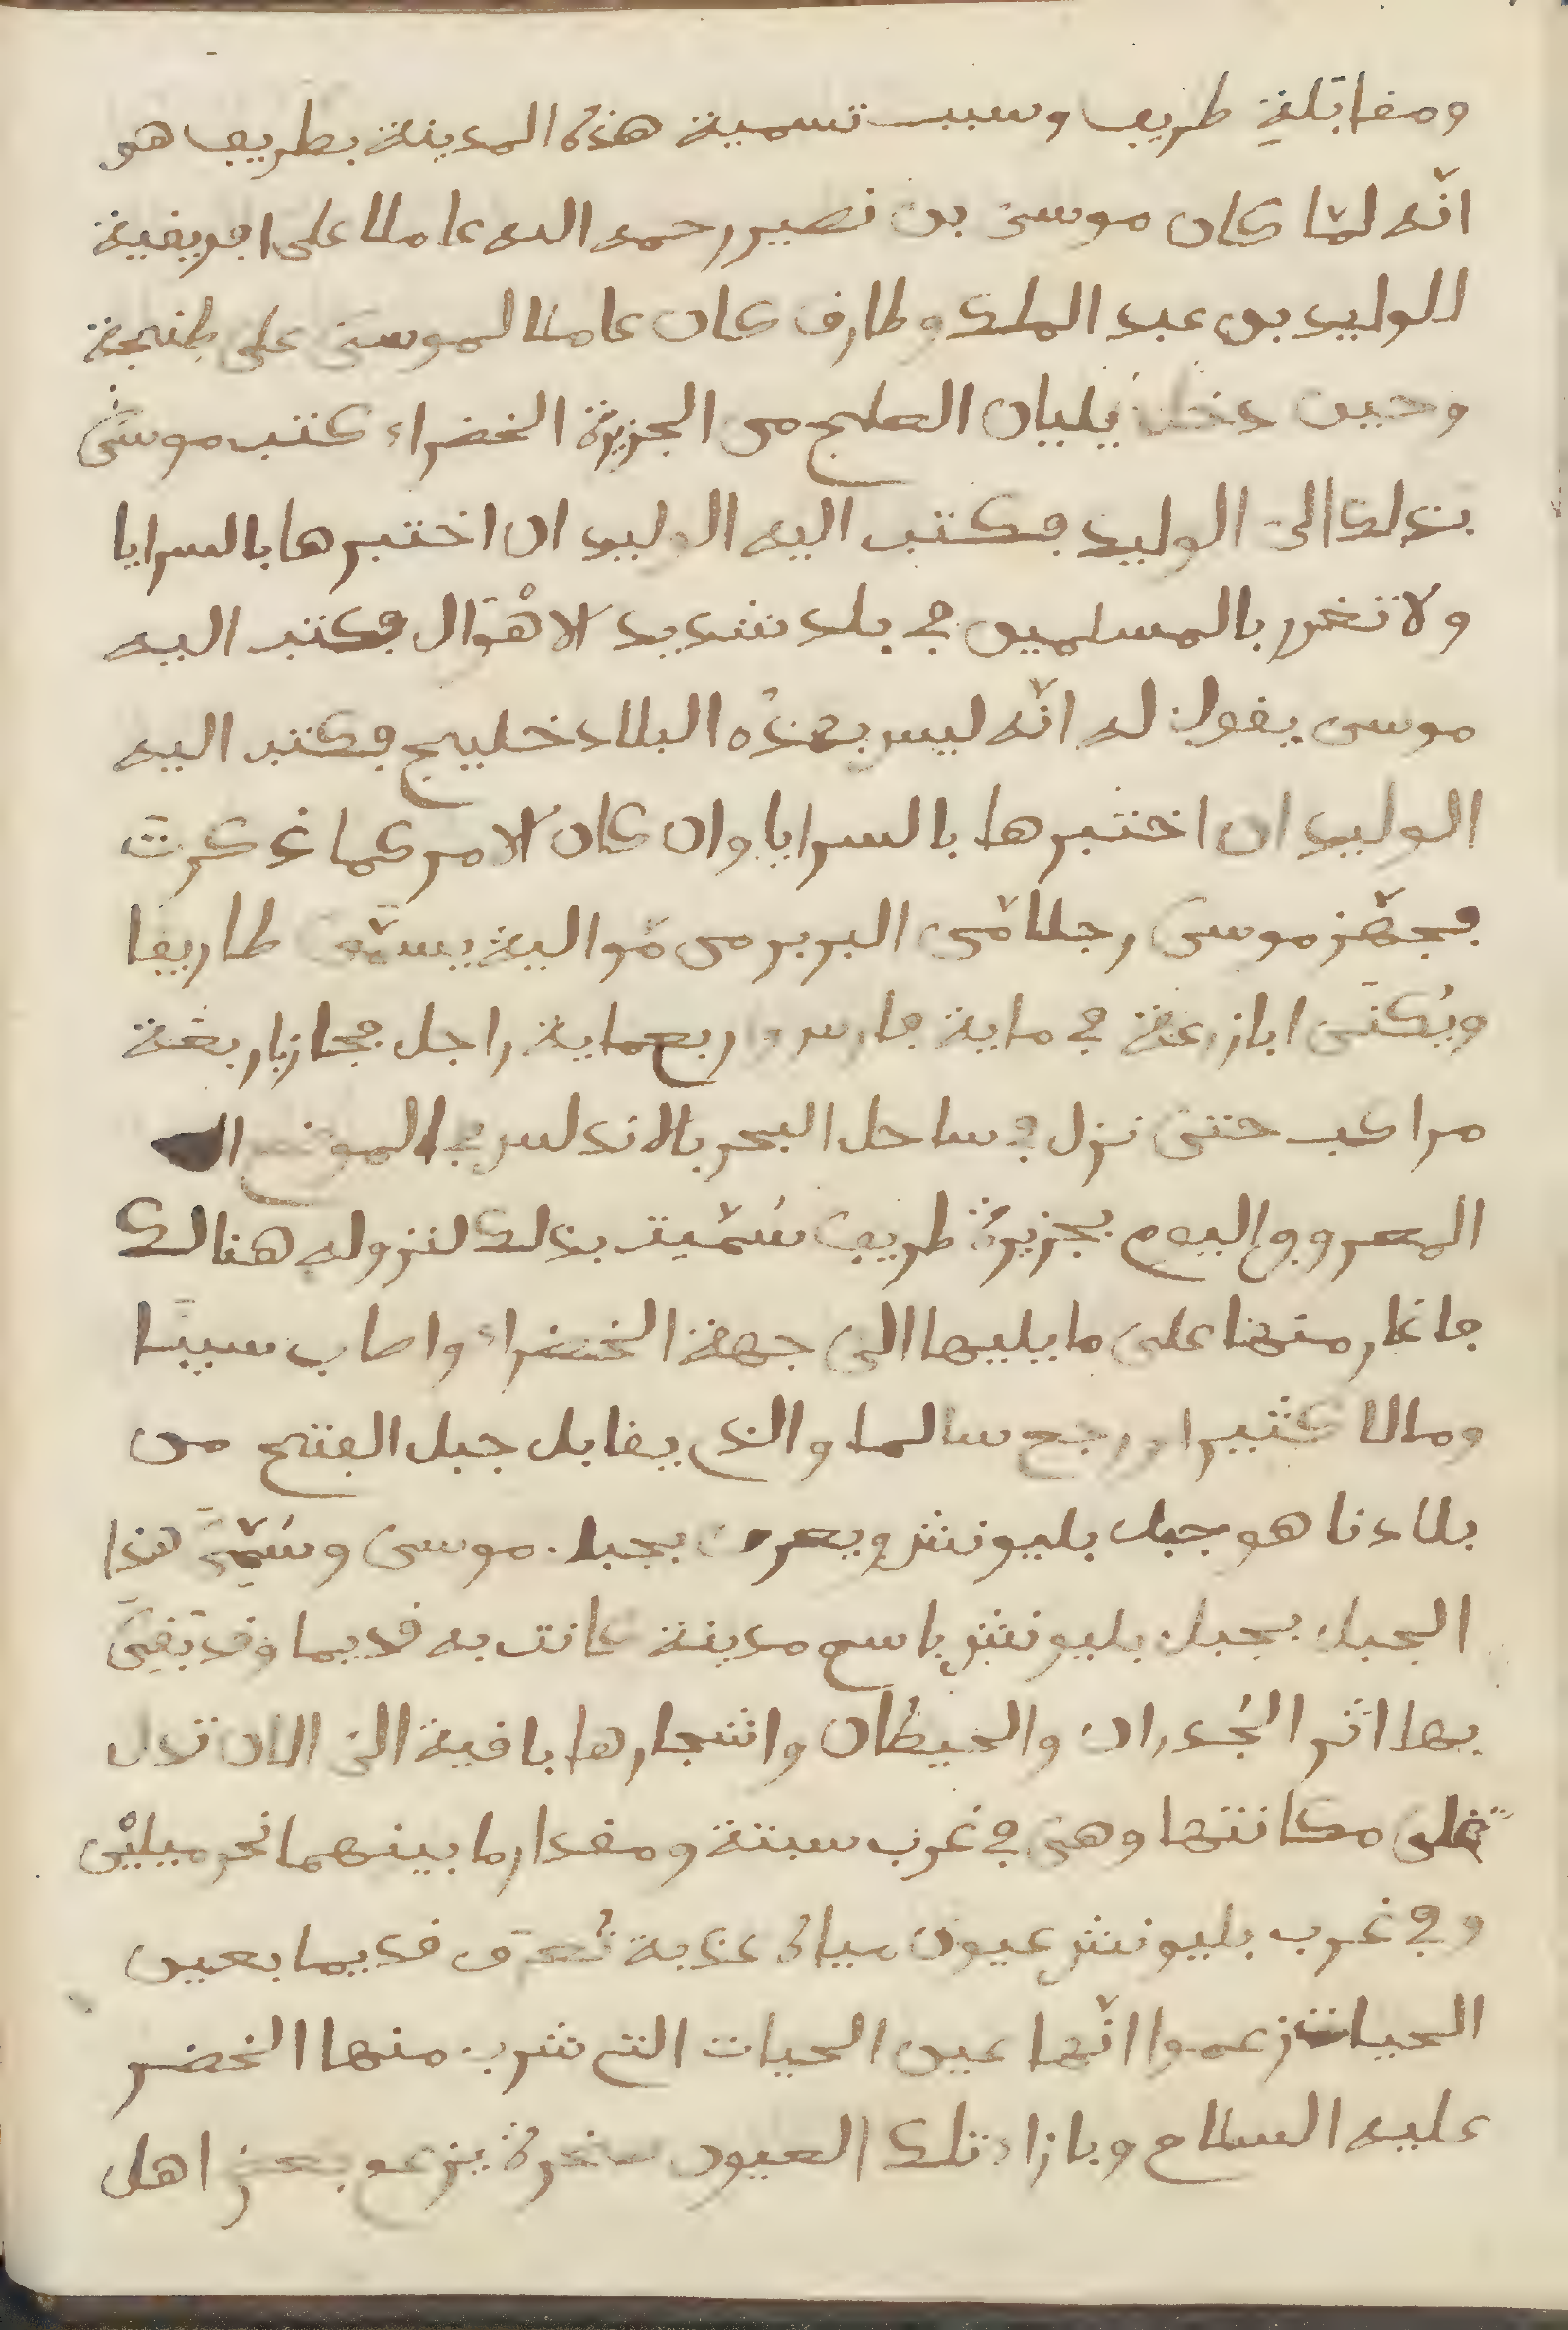 ومقابلة طريف وسبب تسمية هذه المدينة بطريف هو
انّه لمّا كان موسى بن نصير رحمه الله عاملا على افريقية
للوليد بن عبد الملك وطارق كان عاملا لموسى على طنجة
وحين دخل يليان العلج من الجزيرة الخضراء كتب موسى
بذلك الى الوليد فكتب اليه الوليد ان اختبرها بالسرايا
ولا تغرر بالمسلمين في بلد شديد الاهْوَال فكتب اليه
موسى يقول له انّه ليس بهذه البلاد خليج فكتب اليه
الوليد ان اختبرها بالسرايا وان كان الامر كما ذكرت
فجهّز موسى رجلا مّن البربر من مّواليه يسمّى طاريفا
ويُكنَى ابا زرعة في ماية فارس واربعماية راجل فجاز باربعة
مراكب حتى نزل في ساحل البحر بالاندلس في الموضع
المعروف اليوم بجزيرة طريف سُمّيت بذلك لنزوله هنالك
فاغار منها على ما يليها الى جهة الخضراء واصاب سبيا
ومالا كثيرا ورجع سالما والذي يقابل جبل الفتح من
بلادنا هو جبل بليونش ويعرف بجبل موسى وسُمّيَ هذا
الجبل بجبل بليونش باسم مدينة كانت به قديما وقد بَقِيَ
بها اثر الجُدران والحيطان واشجارها باقية الى الان تدل
على مكانتها وهى في غرب سبتة ومقدار ما بينهما نحو ميليْن
وفي غرب بليونش عيون مياه عذبة تُعرَف قديما بعين
الحيات زعموا انّها عين الحيات التي شرب منها الخضر
عليه السلام وبازاء تلك العيون صخرة يزعم بعض اهل